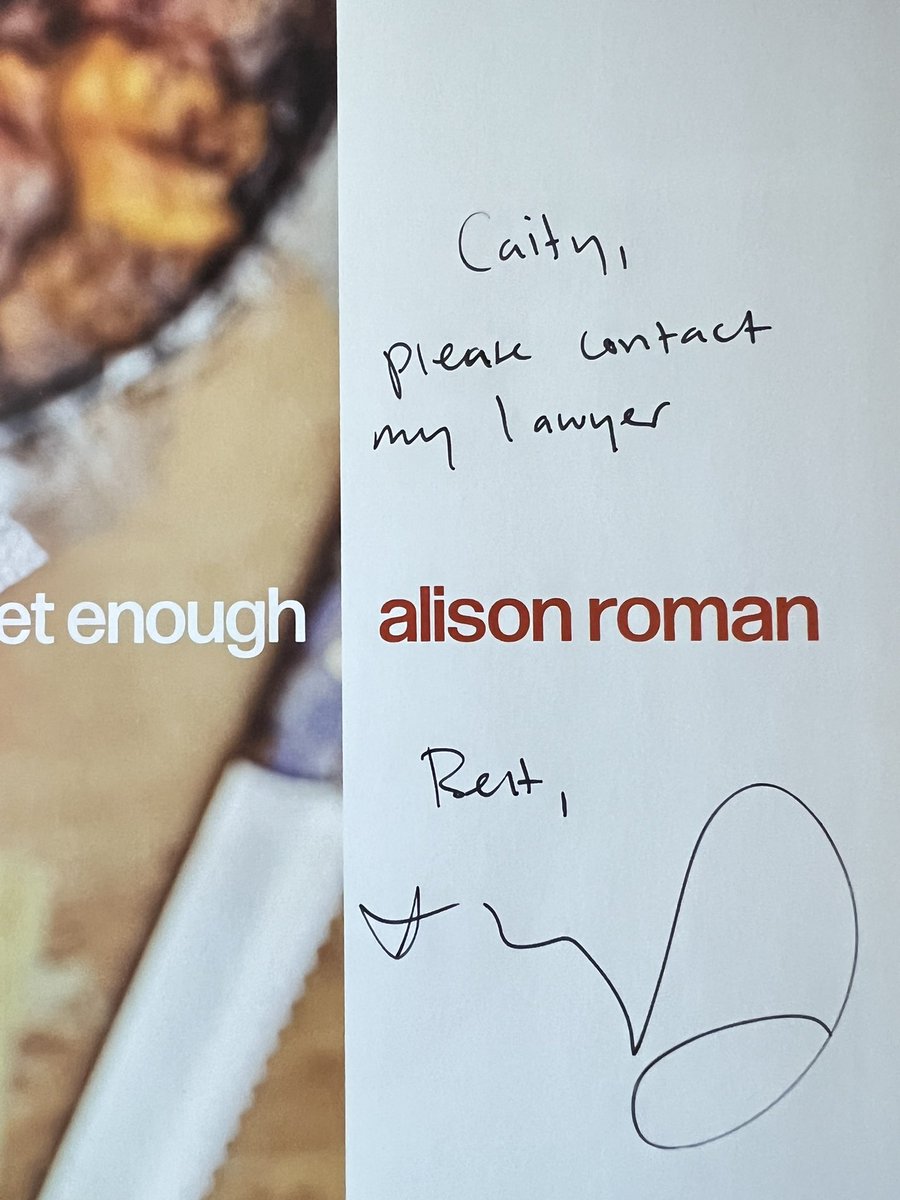 Caity,
please contact
my lawyer
et enough alison roman
Best,